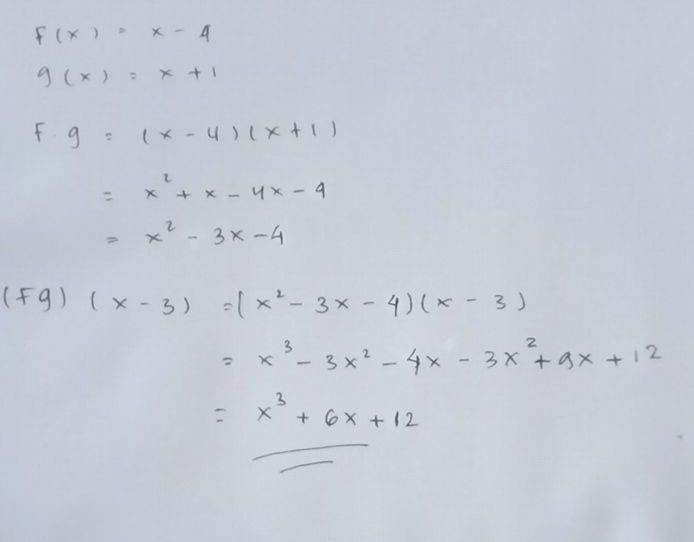 F(x) = x - 4
g(x) = x + 1
F . g = (x - 4)(x + 1)
= x² + x - 4x - 4
= x² - 3x - 4
(Fg) (x - 3) = (x² - 3x - 4)(x - 3)
= x³ - 3x² - 4x - 3x² + 9x + 12
= x³ + 6x + 12